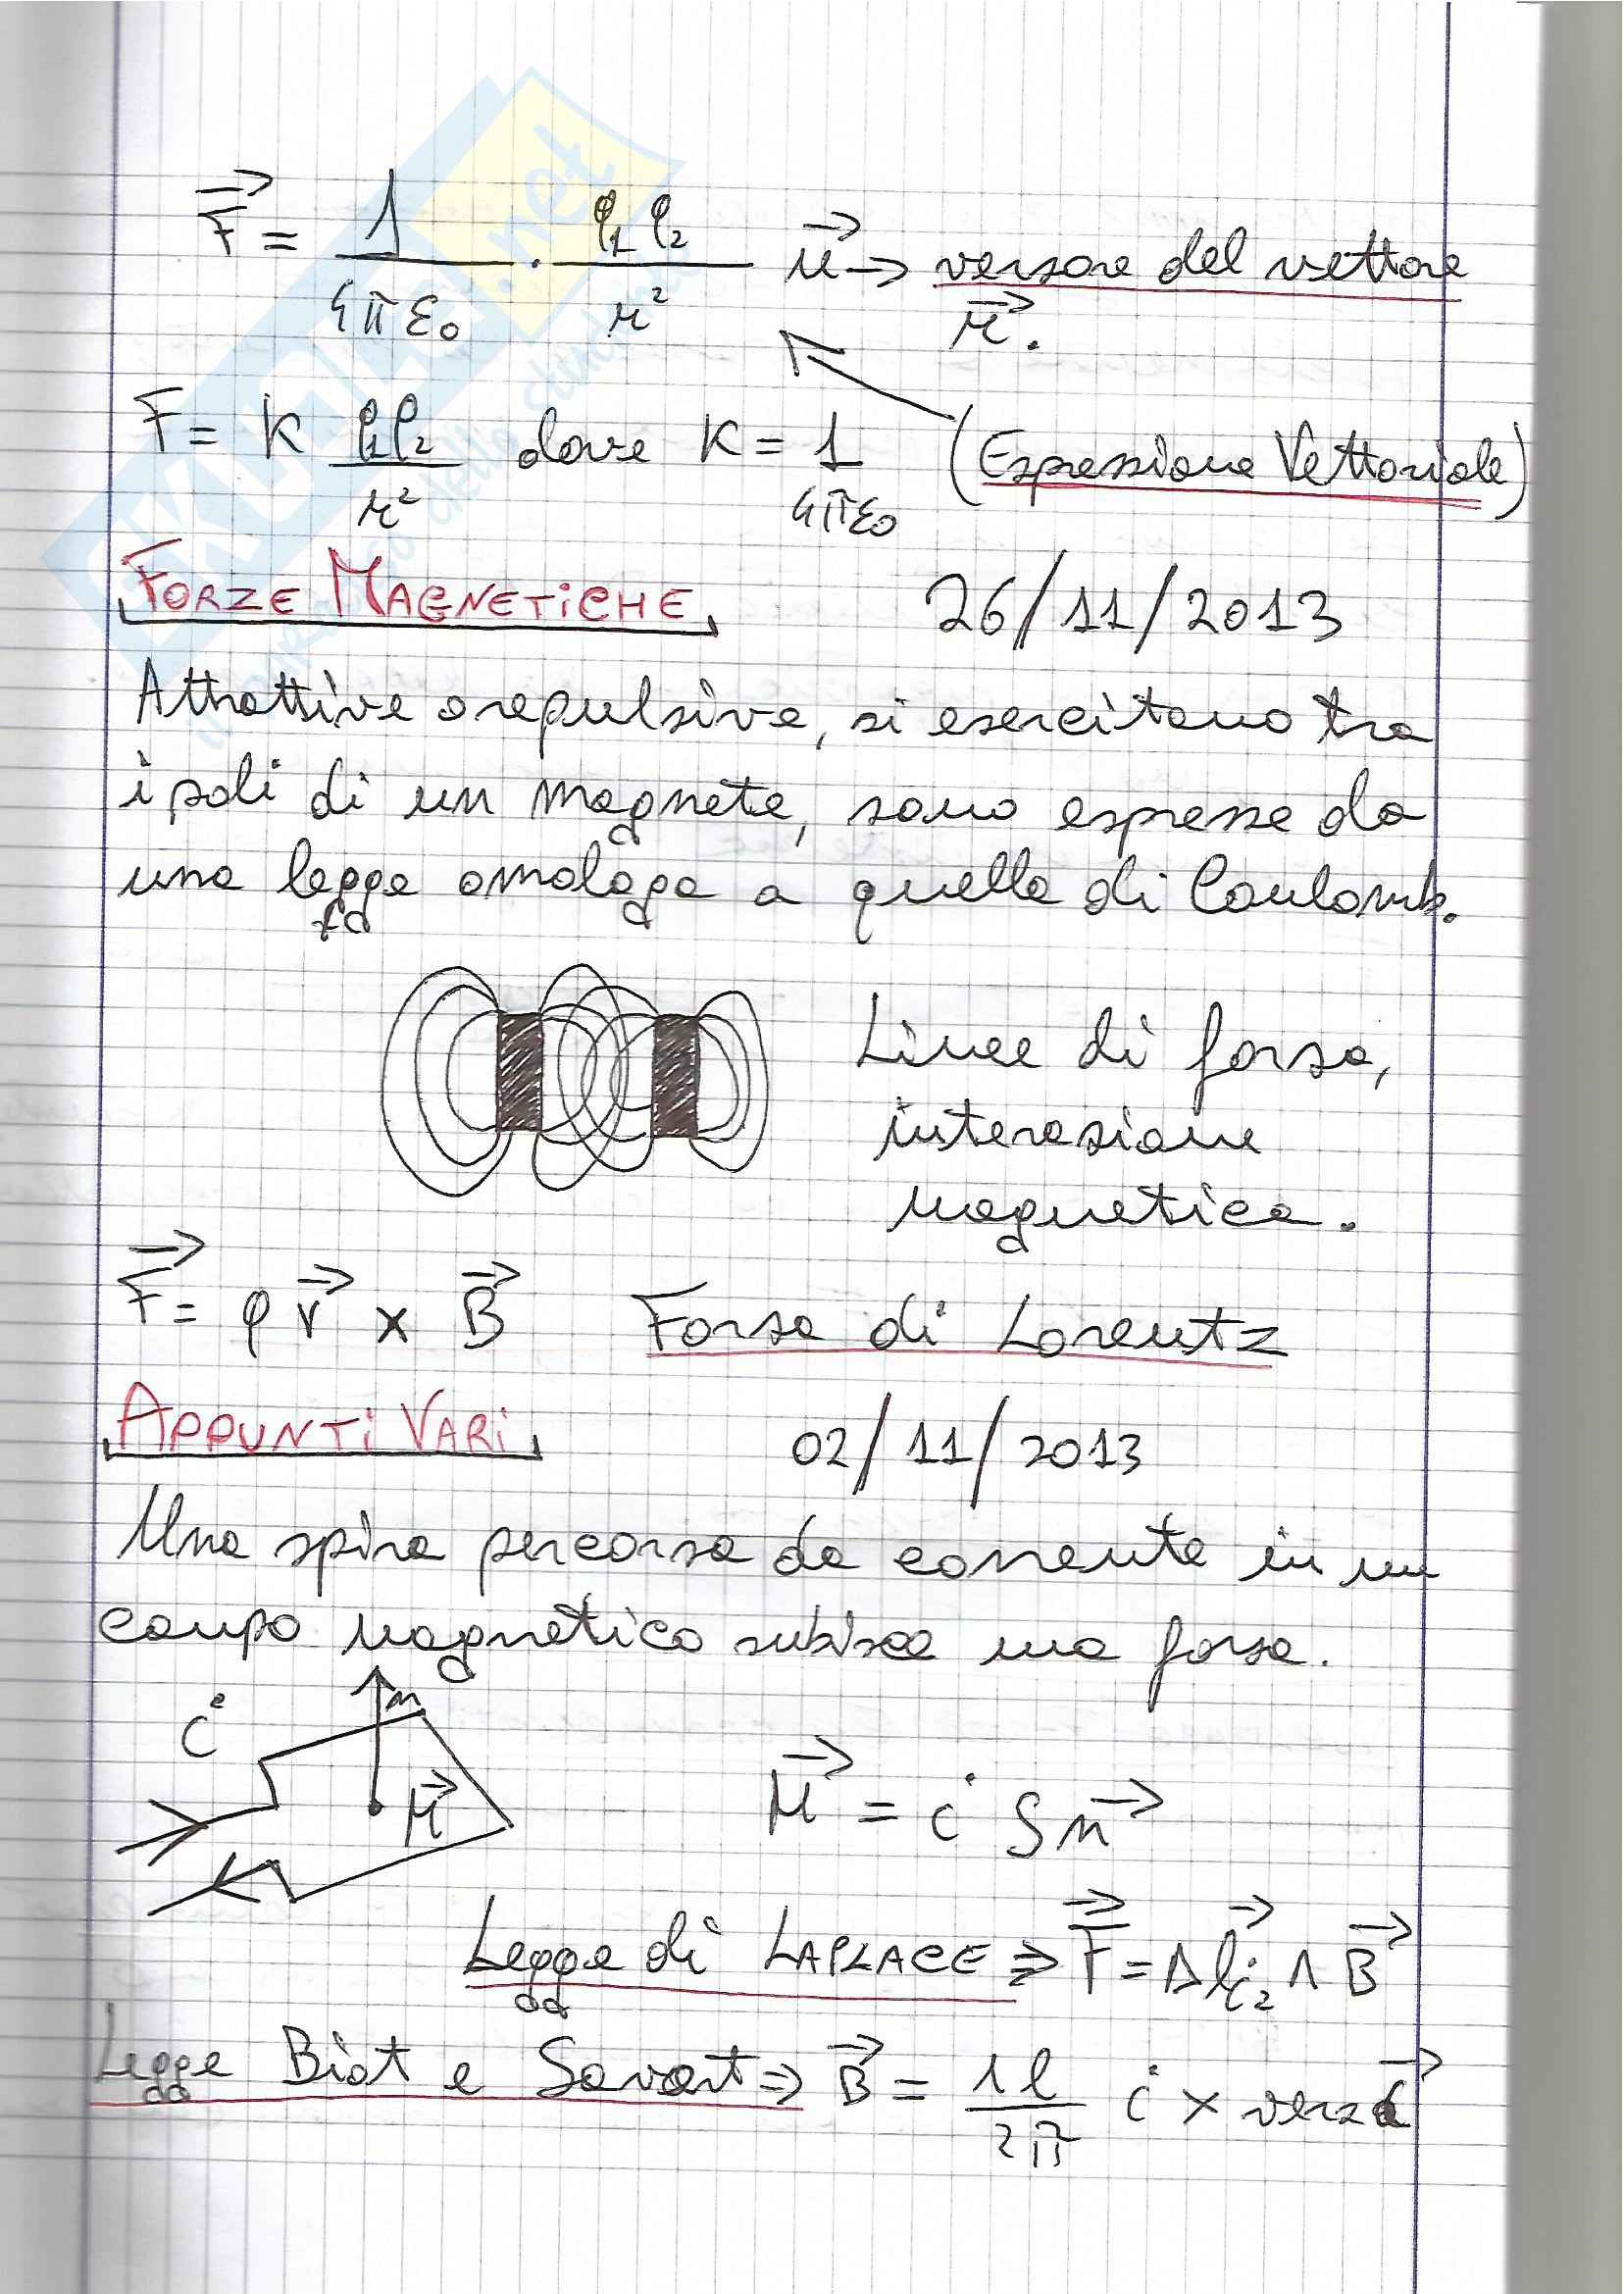 F⃗ = 1/(4πε₀) · q₁q₂/r² u⃗ → versore del vettore
r⃗.
F = K q₁q₂/r² dove K = 1/(4πε₀) (Espressione Vettoriale)
FORZE MAGNETICHE 26/11/2013
Attrattive o repulsive, si esercitano tra
i poli di un magnete, sono espresse da
una legge omologa a quella di Coulomb.
Linee di forza,
interazione
magnetica.
F⃗ = q v⃗ × B⃗ Forza di Lorentz
APPUNTI VARI 02/11/2013
Una spira percorsa da corrente in un
campo magnetico subisce una forza.
i n
M⃗ M⃗ = i S n⃗
Legge di LAPLACE ⇒ F⃗ = Δl⃗i₂ ∧ B⃗
Legge Biot e Savart ⇒ B⃗ = 1l/2π i × vers